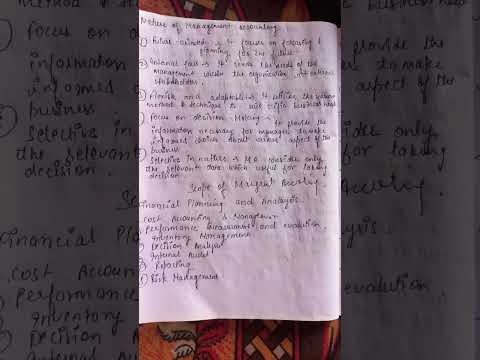 Nature of Management accounting
1) Futur-oriented is it focuses on forecasting &
planning for the future.
2) Internal focus is it serves the needs of the
management within the organisation not external
stakeholders.
3) Flexible and adaptable it utilises the various
method & technique to suit specific business needs
Focus on decision-Making is to provide the
information necessary for managers to make
informed choices about various aspect of the
business
Selective in nature is M.A consider only
the relevant data which useful for taking
decision
Scope of Mangmt Accouting.
Financial Planning and Analysis.
Cost Accounting & Management
Performance measurement and evalution
Inventory Management
Decision Analysis
Internal Audit
Reporting
Risk Management